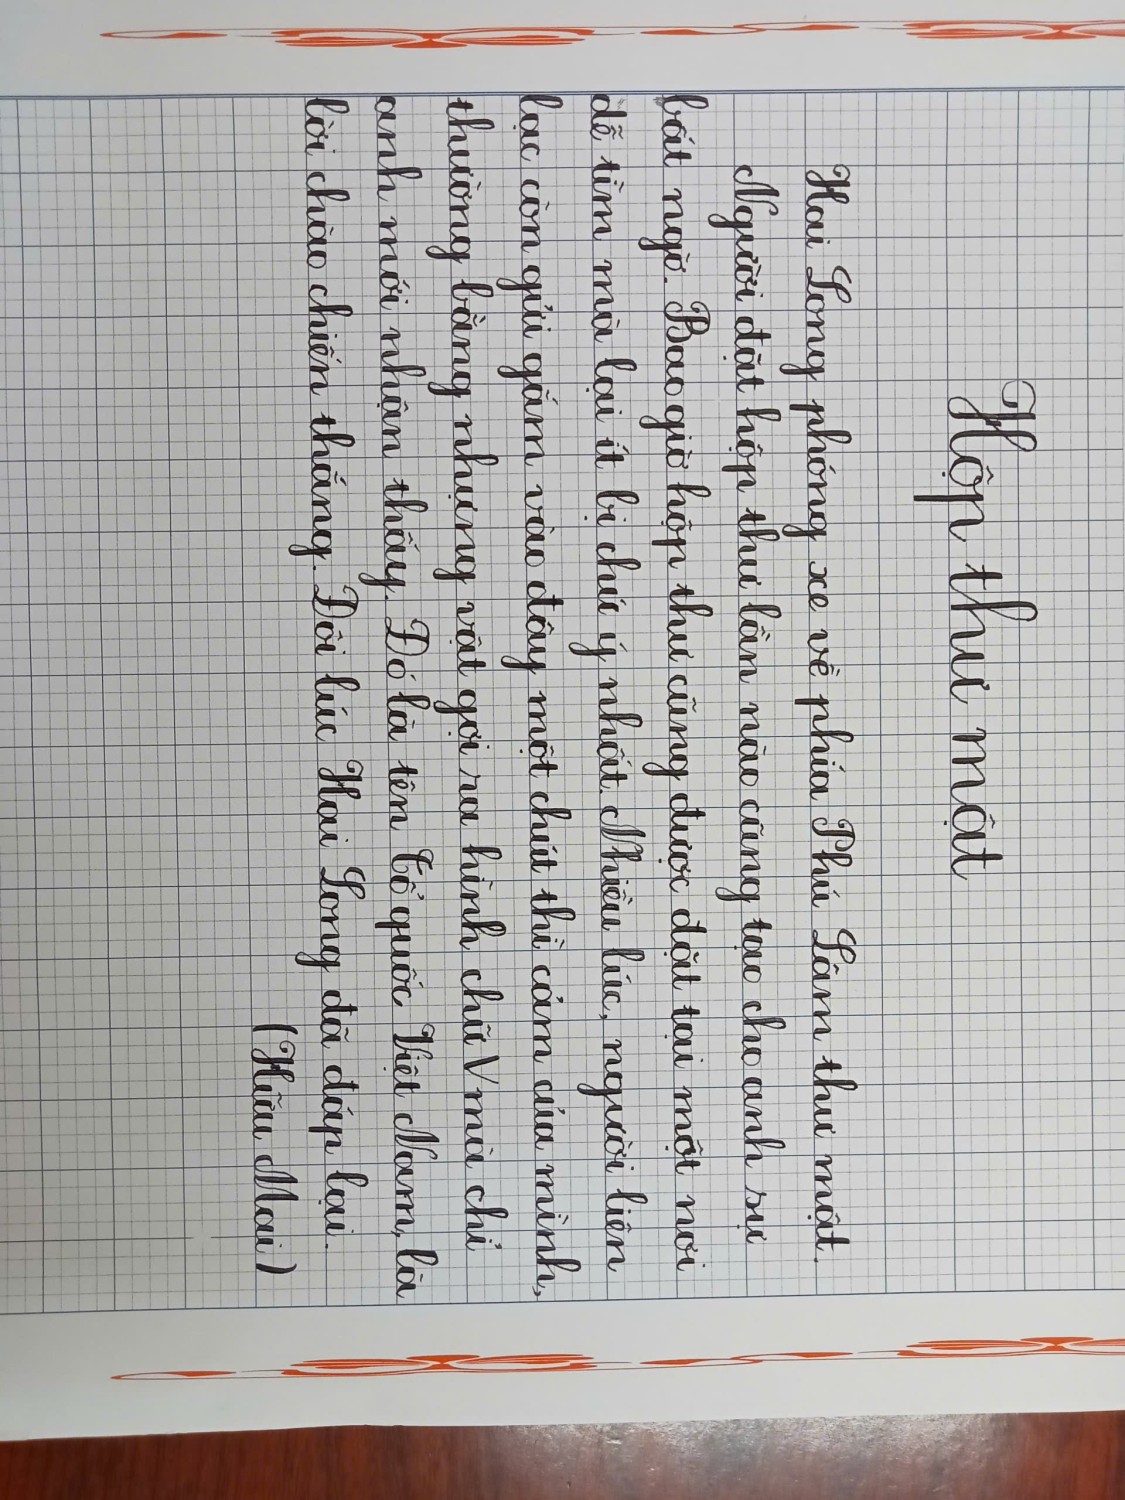 Hộp thư mật
Hai Long phóng xe về phía Phú Lâm thư mật.
Người đặt hộp thư lần nào cũng tạo cho anh sự
bất ngờ. Bao giờ hộp thư cũng được đặt tại một nơi
dễ tìm mà lại ít bị chú ý nhất. Nhiều lúc, người liên
lạc còn gửi gắm vào đây một chút thì cảm của mình,
thường bằng nhưng vật gợi ra hình chữ V mà chỉ
anh mới nhận thấy. Đó là tên Tổ quốc Việt Nam, là
lời chào chiến thắng. Đôi lúc Hai Long đã đáp lại.
(Hữu Mai)